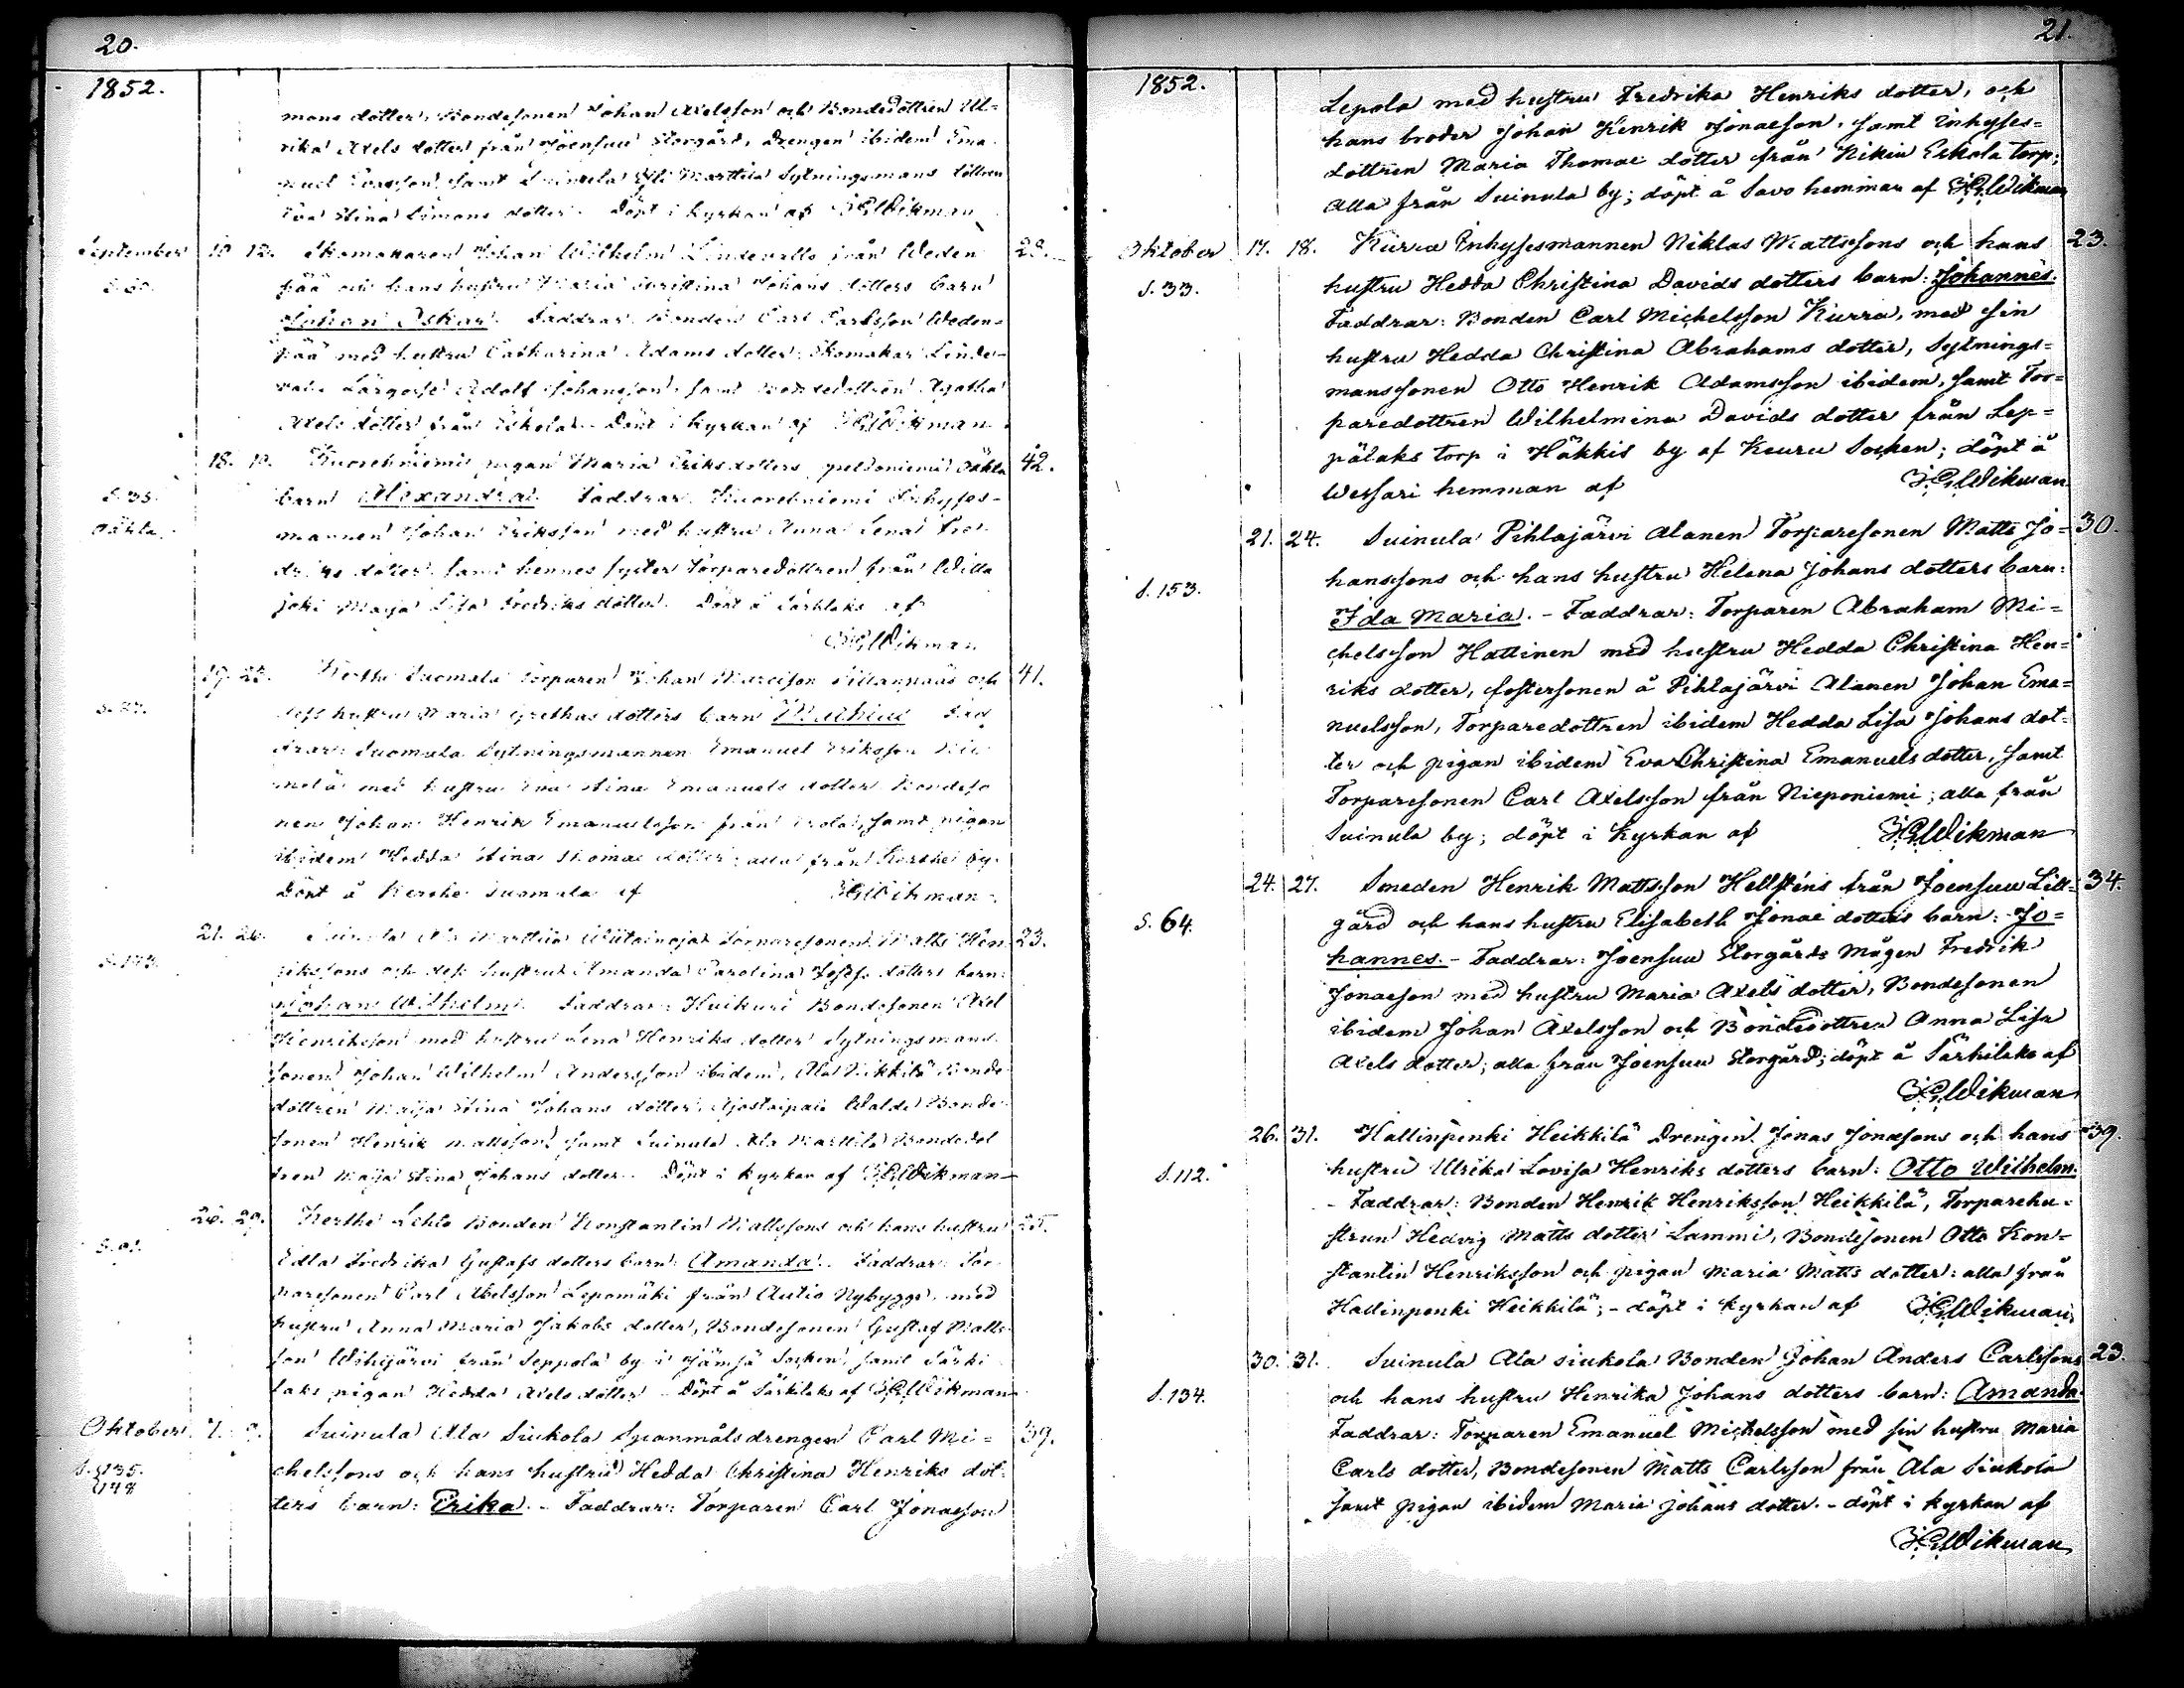 20.
1852.
mans dotter, Bondesonen Johan Axelsson och Bondedottren Ul=
rika Axels dotter från Joensuu Storgård, Drengen ibidem Ema-
nuel samt Suinula Marttila Sytningsmans dottren
Eva Stina Simons dotter. Döpt i kyrkan af Wikman
September 10. 12. Skomakaren Johan Wilhelm Lindevalls från Weden 28.
pää och hans hustru Maria Christina Johans dotters barn
Johan Oskar. Faddrar: Bonden Carl Carlsson Weden-
pää med hustru Catharina Adams dotter; Skomakar Linde-
valls Lärgosse Adolf Johansson, samt Bondedottren Agatha
Axels dotter från Eskola. Döpt i kyrkan af Wikman
18. 19. Kuorehniemi pigan Maria Eriksdotters oäkta 42.
S. 35. barn Alexandra. Faddrar: Kuorehniemi Inhyses-
oäkta. mannen Johan Eriksson med hustru Anna Lena Fre-
driks dotter, samt hennes syster Torparedottren från Willa
joki Maija Lisa Fredriks dotter. Döpt å Särkilaks af
Wikman
19. Kerthe Suomala torparen Johan och 41.
dess hustru Maria dotters barn Mathias Fad
drar: Suomala Sytningsmannen Emanuel Eriksson
med hustru Eva Stina Emanuels dotter Bondeso
nen Johan Henrik Emanuelsson från samt pigan
ibidem Hedda Stina Thomae dotter; alla från Kerthe by.
Döpt å Kerthe Suomala af Wikman
21. 26. Suinula Ala Marttila Torparesonen Matts Hen- 23.
rikssons och dess hustru Amanda Carolina Josefs dotters barn:
Johan Wilhelm. Faddrar: Huikuri Bondesonen Axel
Henriksson med hustru Lena Henriks dotter Sytningsmans
sonen Johan Wilhelm Andersson ibidem, Ala Bonde
dottren Maija Stina Johans dotter, Bonde
sonen Henrik Mattsson, samt Suinula Ala Marttila Bondedot
tren Maija Stina Johans dotter. Döpt i kyrkan af Wikman
26. 29. Kerthe Lehto Bonden Konstantin Mattssons och hans hustru 25.
Edla Fredrika Gustafs dotters barn: Amanda. Faddrar: Tor-
paresonen Carl Abelsson Lepomäki från Autio Nybygge, med
hustru Anna Maria Jakobs dotter, Bondesonen Gustaf Matts-
son Wihijärvi från Seppola by i Jämsä Socken, samt Särki
laks pigan Hedda Axels dotter. Döpt å Särkilaks af Wikman
Oktober 7. 9. Suinula Ala Siukola Spanmålsdrengen Carl Mi= 39.
S. 135. chelssons och hans hustru Hedda Christina Henriks dot-
148 ters barn: Erika. - Faddrar: Torparen Carl Jonasson
21.
1852.
Lepola med hustru Fredrika Henriks dotter, och
hans broder Johan Henrik Jonaeson, samt Inhyses=
dottren Maria Thomae dotter från Nikin Eskola torp;
alla från Suinula by; döpt å Savo hemman af Wikman
Oktober 17. 18. Kurra Inhysesmannen Niklas Mattssons och hans 23.
S. 33. hustru Hedda Christina Davids dotters barn: Johannes.
Faddrar: Bonden Carl Michelsson Kurra, med sin
hustru Hedda Christina Abrahams dotter, Sytnings=
manssonen Otto Henrik Adamsson ibidem, samt Tor=
paredottren Wilhelmina Davids dotter från Lep=
pälaks torp i Häkkis by af Kuuru Socken; döpt å
Wessari hemman af Wikman
21. 24. Suinula Pihlajärvi Alanen Torparesonen Matts Jo= 30.
S. 153. hanssons och hans hustru Helena Johans dotters barn:
Ida Maria. - Faddrar: Torparen Abraham Mi=
chelsson Hattinen med hustru Hedda Christina Hen=
riks dotter, fostersonen å Pihlajärvi Alanen Johan Ema=
nuelsson, Torparedottren ibidem Hedda Lisa Johans dot=
ter och pigan ibidem Eva Christina Emanuels dotter, samt
Torparesonen Carl Axelsson från Nieponiemi; alla från
Suinula by; döpt i kyrkan af Wikman
24. 27. Smeden Henrik Mattsson Hellsténs från Joensuu Lill= 34.
S. 64. gård och hans hustru Elisabeth Jonae dotters barn: Jo=
hannes. - Faddrar: Joensuu Storgårds Mågen Fredrik
Jonaeson med hustru Maria Axels dotter, Bondesonen
ibidem Johan Axelsson och Bondedottren Anna Lisa
Axels dotter; alla från Joensuu Storgård; döpt å Särkilaks af
Wikman
26. 31. Hallinpenki Heikkilä Drengen Jonas Jonaesons och hans 39.
S. 112. hustru Ulrika Lovisa Henriks dotters barn: Otto Wilhelm.
- Faddrar: Bonden Henrik Henriksson Heikkilä, Torparehu=
strun Hedvig Matts dotter Lammi, Bondesonen Otto Kon=
stantin Henriksson och pigan Maria Matts dotter: alla från
Hallinpenki Heikkilä; - döpt i kyrkan af Wikman
30. 31. Suinula Ala siukola Bonden Johan Anders Carlssons 23.
S. 134. och hans hustru Henrika Johans dotters barn: Amanda.
Faddrar: Torparen Emanuel Michelsson med sin hustru Maria
Carls dotter, Bondesonen Matts Carlsson från Ala Siukola
samt pigan ibidem Maria Johans dotter. - döpt i kyrkan af
Wikman